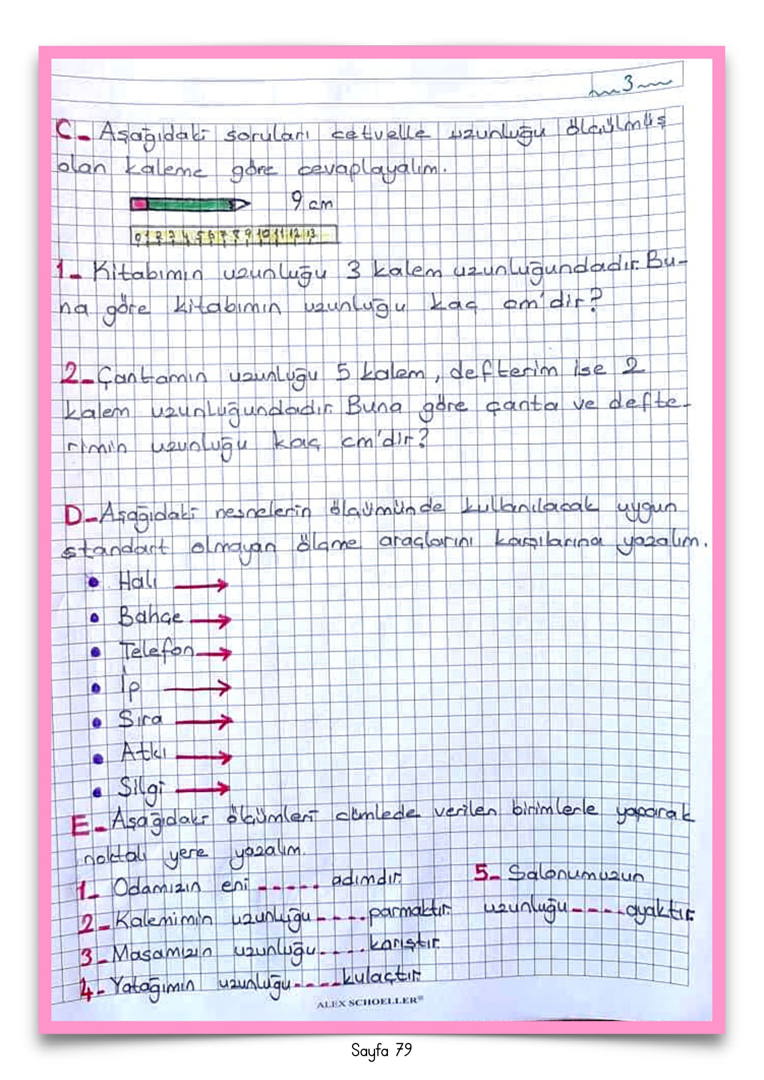 3
C- Aşağıdaki soruları cetvelle uzunluğu ölçülmüş
olan kaleme göre cevaplayalım.
9 cm
0 1 2 3 4 5 6 7 8 9 10 11 12 13
1- Kitabımın uzunluğu 3 kalem uzunluğundadır. Bu-
na göre kitabımın uzunluğu kaç cm'dir?
2- Çantamın uzunluğu 5 kalem, defterim ise 2
kalem uzunluğundadır. Buna göre çanta ve defte-
rimin uzunluğu kaç cm'dir?
D- Aşağıdaki nesnelerin ölçümünde kullanılacak uygun
standart olmayan ölçme araçlarını karşılarına yazalım.
• Halı →
• Bahçe →
• Telefon →
• İp →
• Sıra →
• Atkı →
• Silgi →
E- Aşağıdaki ölçümleri cümlede verilen birimlerle yaparak
noktalı yere yazalım.
1- Odamızın eni ----- adımdır.
2- Kalemimin uzunluğu ----- parmaktır.
3- Masamızın uzunluğu ----- karıştır.
4- Yatağımın uzunluğu ----- kulaçtır.
5- Salonumuzun
uzunluğu ----- ayaktır.
ALEX SCHOELLER®
Sayfa 79